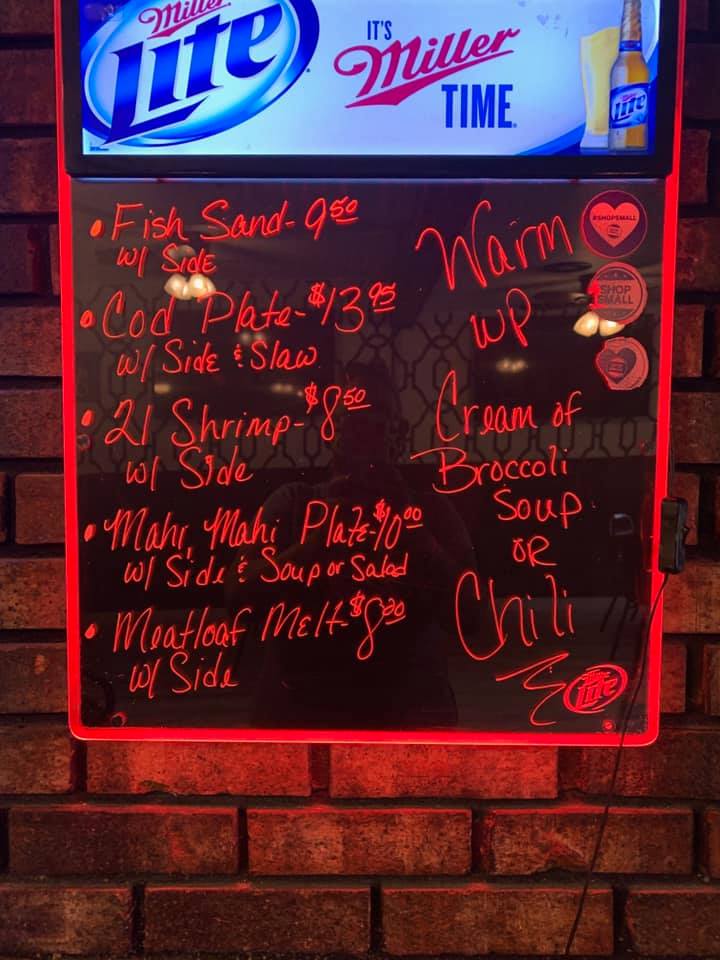 Miller
Lite
IT'S
Miller
TIME
Lite
• Fish Sand- 9 50
w/ Side
• Cod Plate- $13 95
w/ Side & Slaw
• 21 Shrimp- $8 50
w/ Side
• Mahi, Mahi Plate- $10 00
w/ Side & Soup or Salad
• Meatloaf Melt- $8 00
w/ Side
Warm
up
Cream of
Broccoli
Soup
OR
Chili
#SHOPSMALL
SHOP
SMALL
Lite